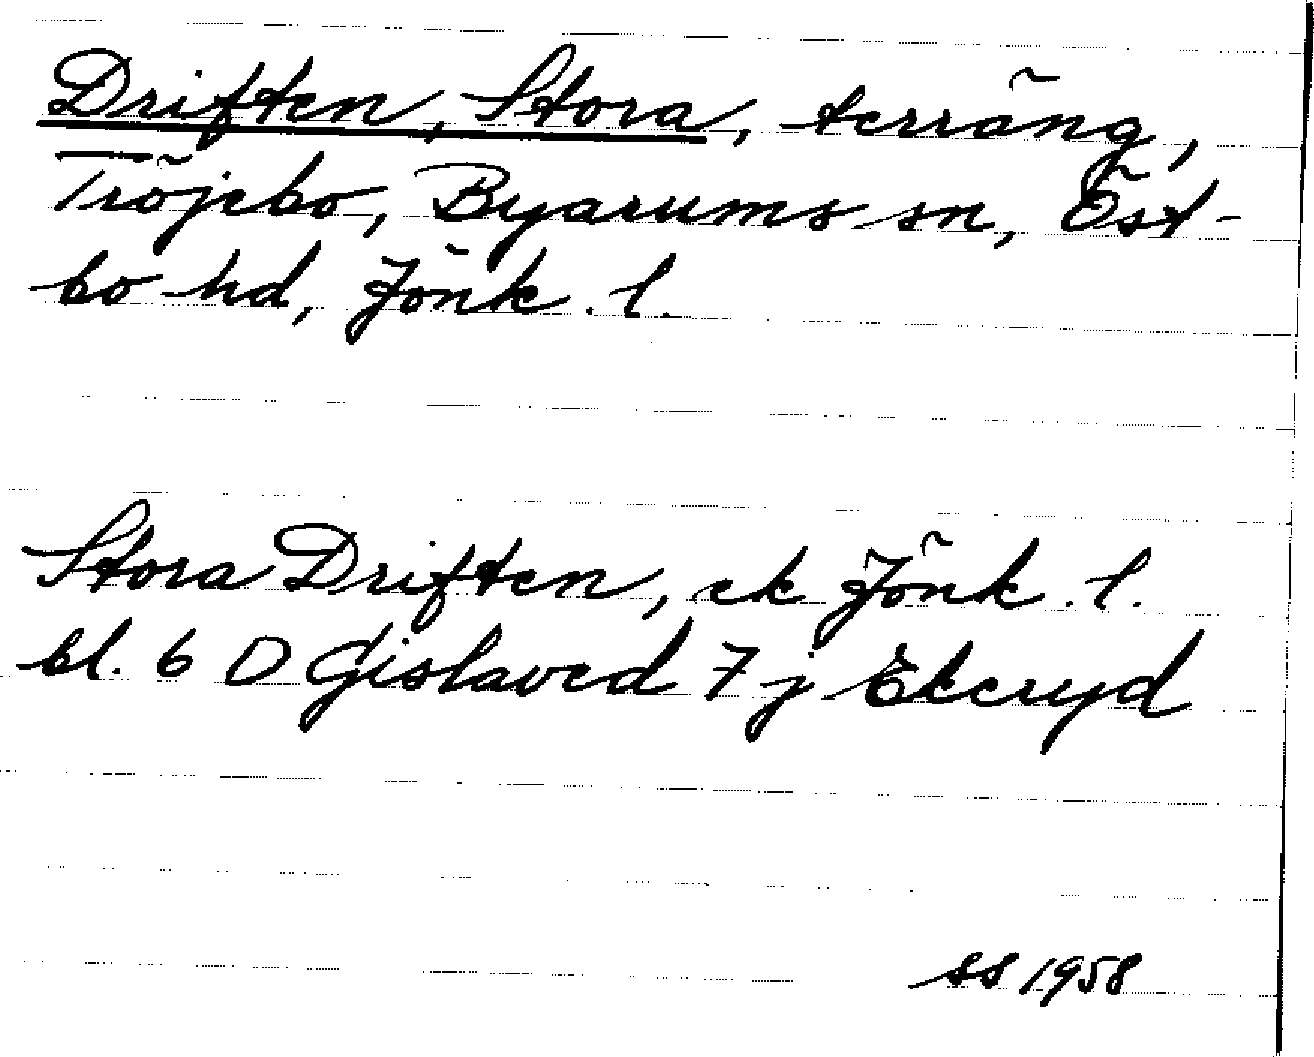 Driften, Stora, terräng,
Tröjebo, Byarums sn, Öst-
bo hd, Jönk. l.
Stora Driften, ek Jönk. l.
bl. 6 D Gislaved 7 j Ekeryd
SS 1958